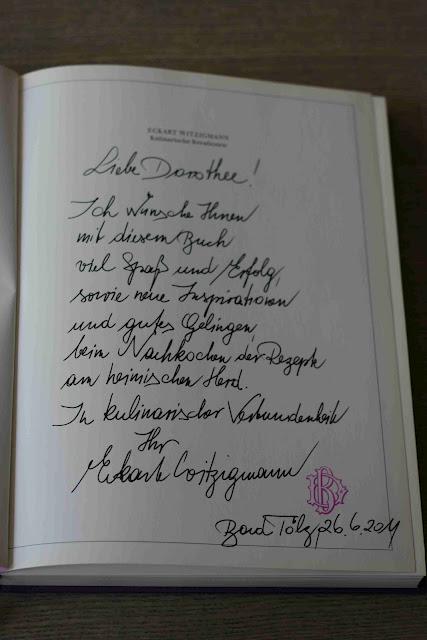 ECKART WITZIGMANN
Kulinarische Kreationen
Liebe Dorothee!
Ich wünsche Ihnen
mit diesem Buch
viel Spaß und Erfolg,
sowie neue Inspirationen
und gutes Gelingen
beim Nachkochen der Rezepte
am heimischen Herd.
In kulinarischer Verbundenheit
Ihr
Eckart Witzigmann
Bad Tölz, 26.6.2011